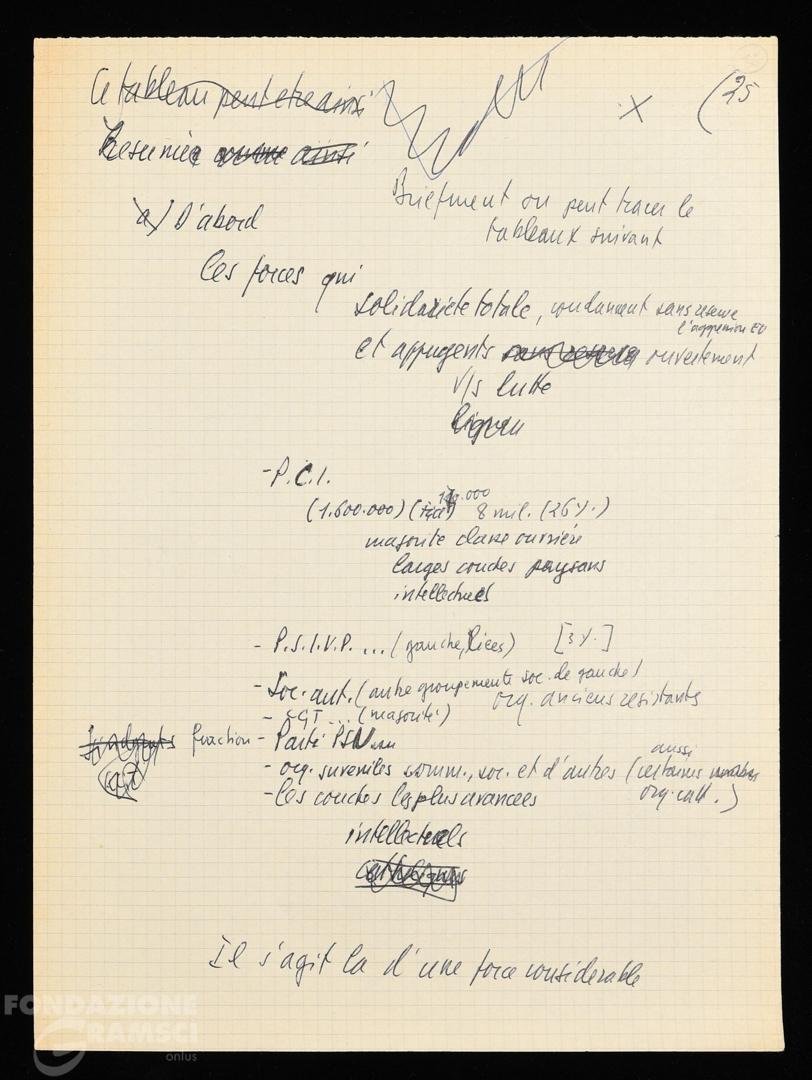 (25
X
Ce tableau peut etre ainsi
Resumé comme ainsi
Briefment on peut tracer le
tableaux suivant
a) D'abord
les forces qui
solidariété totale, condamnent sans reserve
l'aggression EU
et appugents ouvertement
v/s lutte
- P.C.I.
(1.600.000) 8 mil. (26%)
majorité classe ouvrière
larges couches paysans
intellectuels
- P.S.I.U.P. ... (gauche, [3%]
- Soc. aut. (autre groupements soc. de gauche)
org. anciens resistants
- CGT ... (majorité)
fraction - Parti PSU
- org. juveniles comm., soc. et d'autres (certaines
aussi
org. cath.)
- les couches les plus avancées
intellectuels
Il s'agit la d'une force considerable
FONDAZIONE
GRAMSCI
onlus